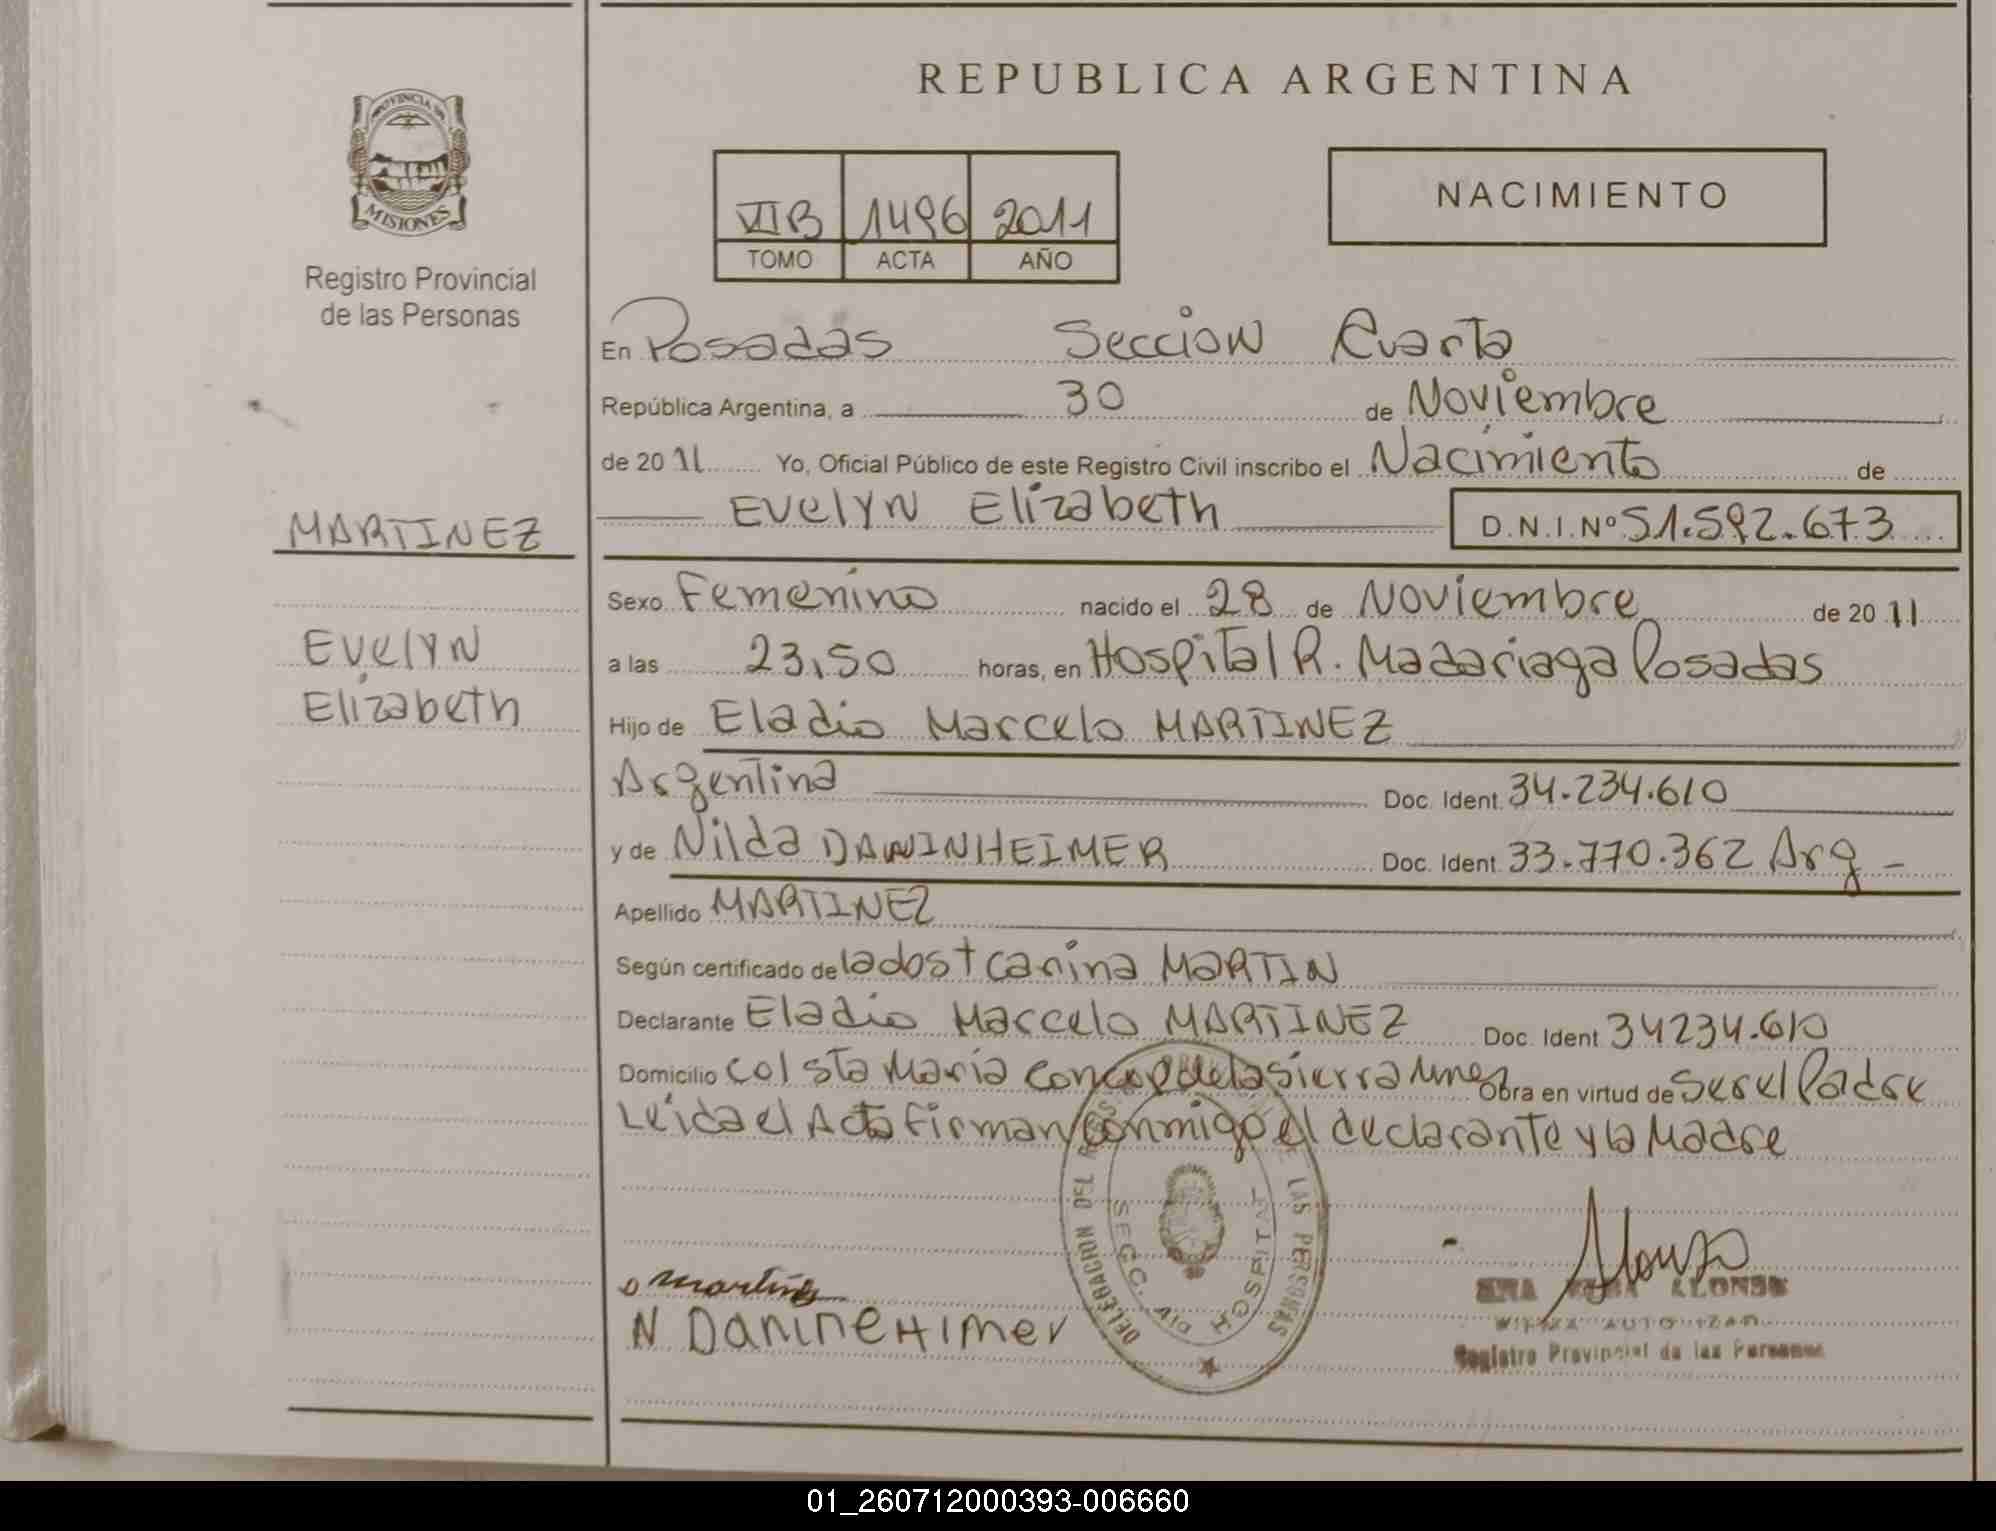 REPUBLICA ARGENTINA
PROVINCIA DE
MISIONES
Registro Provincial
de las Personas
NACIMIENTO
VII B 1496 2011
TOMO ACTA AÑO
En Posadas Seccion Cuarta
República Argentina, a 30 de Noviembre
de 2011 Yo, Oficial Público de este Registro Civil inscribo el Nacimiento de
Evelyn Elizabeth D.N.I.Nº 51.592.673
MARTINEZ
Evelyn
Elizabeth
Sexo Femenino nacido el 28 de Noviembre de 2011
a las 23,50 horas, en Hospital R. Madariaga Posadas
Hijo de Eladio Marcelo MARTINEZ
Argentina Doc. Ident. 34.234.610
y de Nilda DANINHEIMER Doc. Ident. 33.770.362 Arg
Apellido MARTINEZ
Según certificado de la obst Canina MARTIN
Declarante Eladio Marcelo MARTINEZ Doc. Ident 34234.610
Domicilio Col Sta Maria Concep de la Sierra Mnes Obra en virtud de Ser el Padre
Leida el Acta Firman Conmigo el declarante y la Madre
DELEGACION DEL REG. DE LAS PERSONAS
SECC. 4ta HOSPITAL
N Daninehimer
Alonso
SRA ALONSO
Registro Provincial de las Personas
01_260712000393-006660